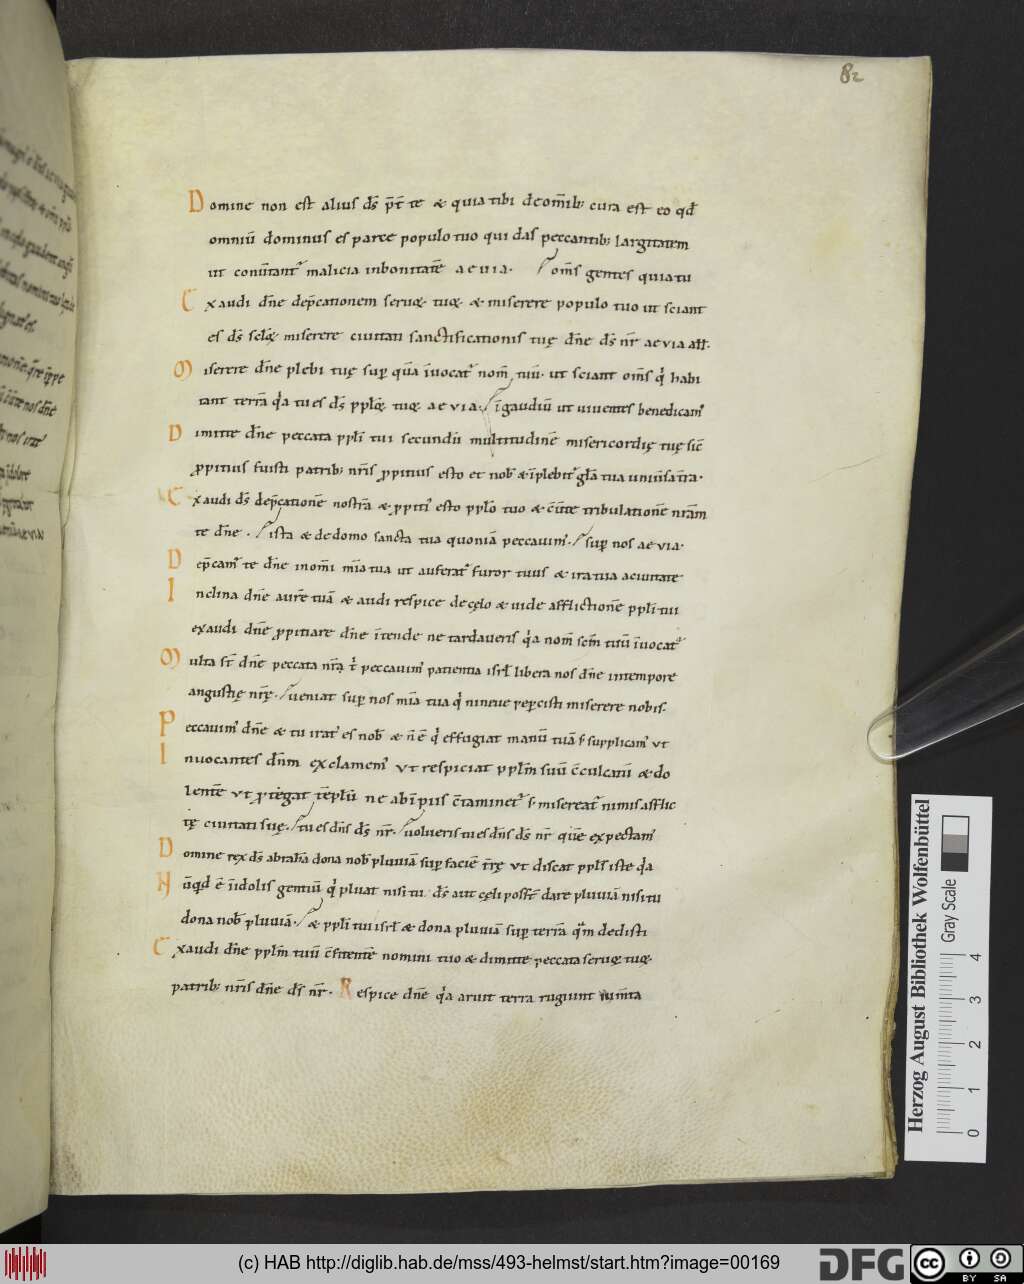 82
Domine non est alius d̄s p̄t te & quia tibi de om̄ib; cura est eo qđ
omniū dominus es parce populo tuo qui das peccantib; largitatem
ut conūtant᷑ malicia inbonitatē aeuia. om̄s gentes quia tu
Exaudi dn̄e dep̄cationem seruoꝝ tuoꝝ & miserere populo tuo ut sciant
es d̄s miserere ciuitati sanctificationis tuę dn̄e d̄s nr̄ aeuia all̄.
Miserere dn̄e plebi tuę sup̱ quā īuocat᷑ nom̄ tuū. ut sciant om̄s q' habi
tant terrā q'a tu es d̄s tuoꝝ aeuia. īgaudiū ut uiuentes benedicam᷑
Dimitte dn̄e peccata ppl̄i tui secundū multitudinē misericordię tuę sic̄
ꝓpitius fuisti patrib; nr̄is ꝓpitius esto et nob̄ & īplebit᷑ gl̄a tua
Exaudi d̄s dep̄cationē nostrā & ꝓpiti' esto ppl̄o tuo & tribulationē nrām
te dn̄e. ista & de domo sancta tua quoniā peccauim᷑. sup̱ nos aeuia.
Dep̄cam᷑ te dn̄e inom̄i mīa tua ut auferat᷑ furor tuus & ira tua aciuitate
Inclina dn̄e aurē tuā & audi respice decęlo & uide afflictionē ppl̄i tui
exaudi dn̄e ꝓpitiare dn̄e ītende ne tardaueris q'a nom̄ scm̄ tuū īuocat᷑
Multa st̄ dn̄e peccata nr̄a t' peccauim᷑ patientia isrl̄ libera nos dn̄e intempore
angustię nr̄ę. ueniat sup̱ nos mīa tua q' nineue pep̱cisti miserere nobis.
Peccauim᷑ dn̄e & tu irat' es nob̄ & n̄ ē q' effugiat manū tuā s; supplicam᷑ ut
Inuocantes dn̄m exclamem᷑ ut respiciat ppl̄m suū c̄culcatū & do
lentē ut ꝓtegat tēplū ne ab īpiis c̄taminet᷑ s; misereat᷑ nimis afflic
tę ciuitati suę. tu es dn̄s d̄s nr̄. uolueris tu es dn̄s d̄s nr̄ quē expectam᷑
Domine rex d̄s abrahā dona nob̄ pluuiā sup̱ faciē tr̄ę ut discat ppl̄s iste q'a
Nūqd̄ ē īidolis gentiū q' pluat nisi tu d̄s aut cęli poss̄t dare pluuiā nisi tu
dona nob̄ pluuiā. & ppl̄i tui isrl̄ & dona pluuiā sup̱ terrā quā dedisti
Exaudi dn̄e ppl̄m tuū c̄fitentē nomini tuo & dimitte peccata seruoꝝ tuoꝝ
patrib; nr̄is dn̄e d̄s nr̄. Respice dn̄e q'a aruit terra rugiunt ium̄ta
Herzog August Bibliothek Wolfenbüttel
Gray Scale
0 1 2 3 4
(c) HAB http://diglib.hab.de/mss/493-helmst/start.htm?image=00169
DFG
cc BY SA